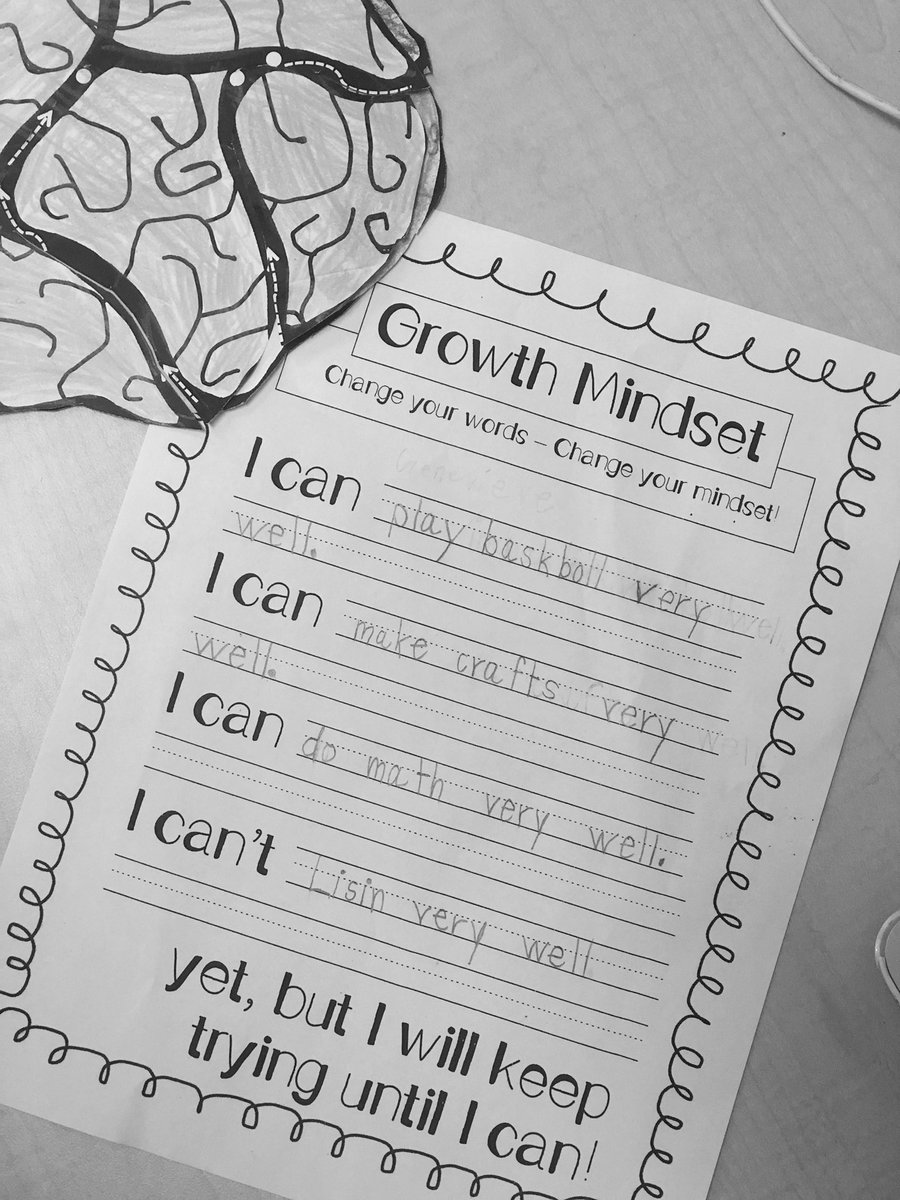 Growth Mindset
Change your words – Change your mindset!
I can play baskboll very
well.
I can make crafts very
well.
I can do math very well.
I can't Lisin very well
yet, but I will keep
trying until I can!